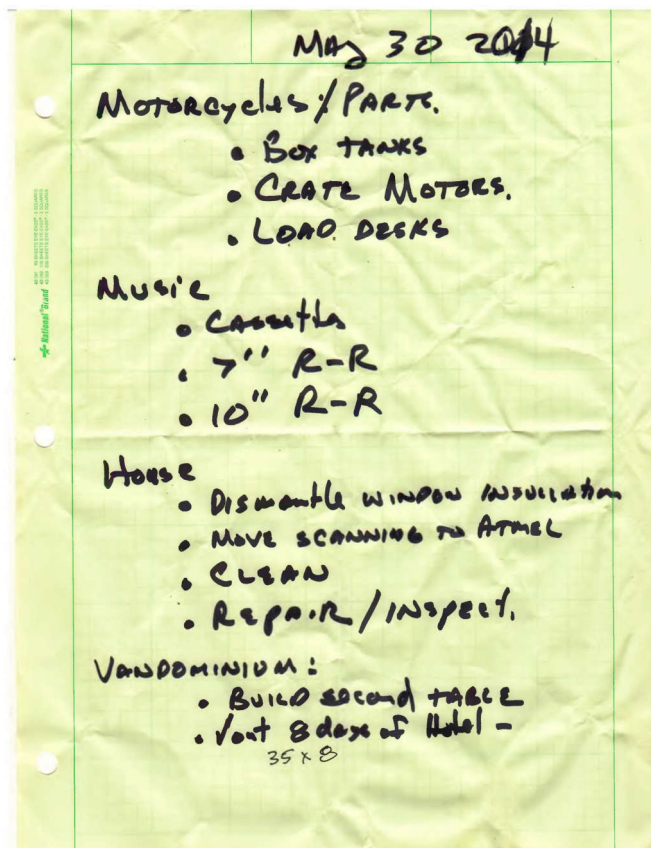 May 30 2014
MOTORCYCLES / PARTS.
• BOX TANKS
• CRATE MOTORS.
• LOAD DESKS
MUSIC
• CASSETTES
• 7" R-R
• 10" R-R
HOUSE
• DISMANTLE WINDOW INSULLATION
• MOVE SCANNING TO ATMEL
• CLEAN
• REPAIR / INSPECT.
VANDOMINIUM:
• BUILD SECOND TABLE
• 8 days of Hotel -
35 x 8
National® Brand